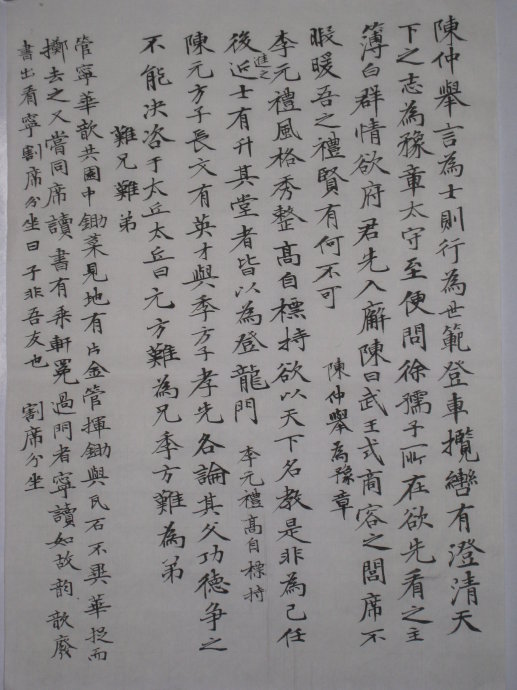 陳仲舉言為士則行為世範登車攬轡有澄清天
下之志為豫章太守至便問徐孺子所在欲先看之主
簿白群情欲府君先入廨陳曰武王式商容之閭席不
暇暖吾之禮賢有何不可
陳仲舉為豫章
李元禮風格秀整高自標持欲以天下名教是非為己任
後進之士有升其堂者皆以為登龍門
李元禮高自標持
陳元方子長文有英才與季方子孝先各論其父功德爭之
不能決咨于太丘太丘曰元方難為兄季方難為弟
難兄難弟
管寧華歆共園中鋤菜見地有片金管揮鋤與瓦石不異華捉而
擲去之又嘗同席讀書有乘軒冕過門者寧讀如故歆廢
書出看寧割席分坐曰子非吾友也
割席分坐